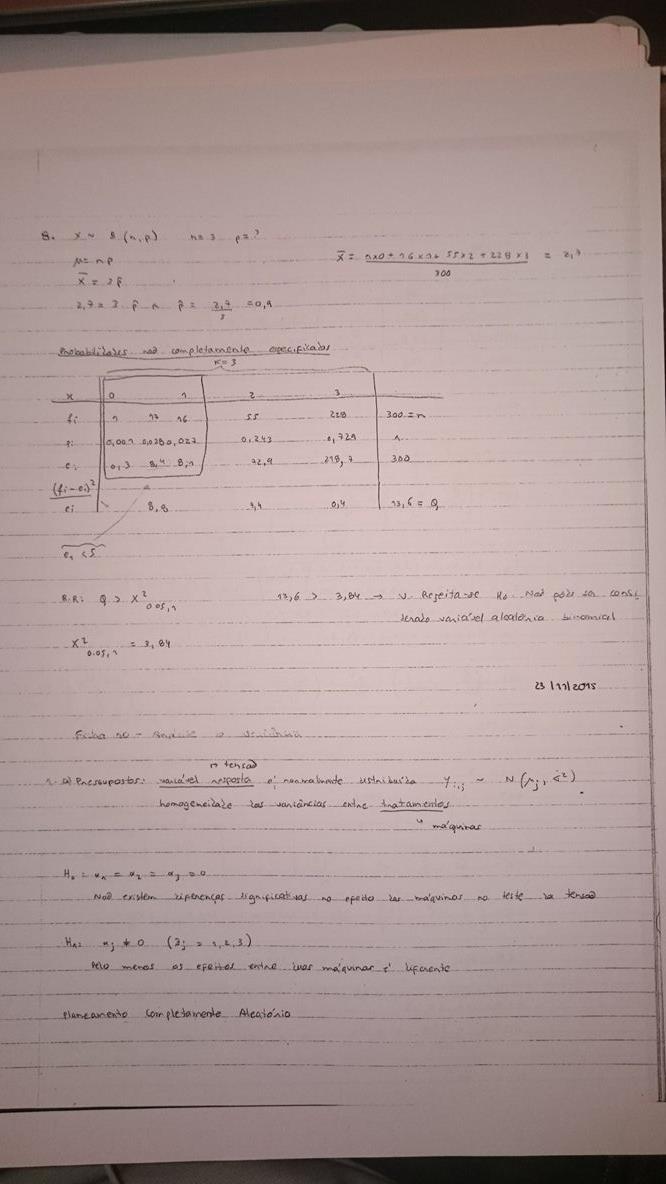 8. X ~ B(n,p) n=3 p=?
μ=np
x̄ = (1x0 + 16x1 + 55x2 + 228x3) / 300 = 2,7
x̄ = 3p̂
2,7 = 3 p̂ p̂ = 2,7/3 = 0,9
Probabilidades não completamente especificadas
K=3
x 0 1 2 3
fi 1 17 16 55 228 300=n
pi 0,001 0,028 0,027 0,243 0,729 1
ei 0,3 8,4 8,1 72,9 218,7 300
(fi-ei)²/ei 8,8 4,4 0,4 13,6 = Q
e1 < 5
R.R: Q > X² 0.05,1 13,6 > 3,84 → V. Rejeita-se H0. Não pode ser consi
derado variável aleatória binomial
X² 0.05,1 = 3,84
23/11/2015
Ficha 10 -
↱ tensão
1. a) Pressupostos: variável resposta é normalmente distribuída Yij ~ N(μj, σ²)
homogeneidade das variâncias entre tratamentos
↳ máquinas
H0: α1 = α2 = α3 = 0
Não existem diferenças significativas no efeito das máquinas no teste da tensão
H1: αj ≠ 0 (∃j = 1,2,3)
Pelo menos os efeitos entre duas máquinas é diferente
Planeamento Completamente Aleatório